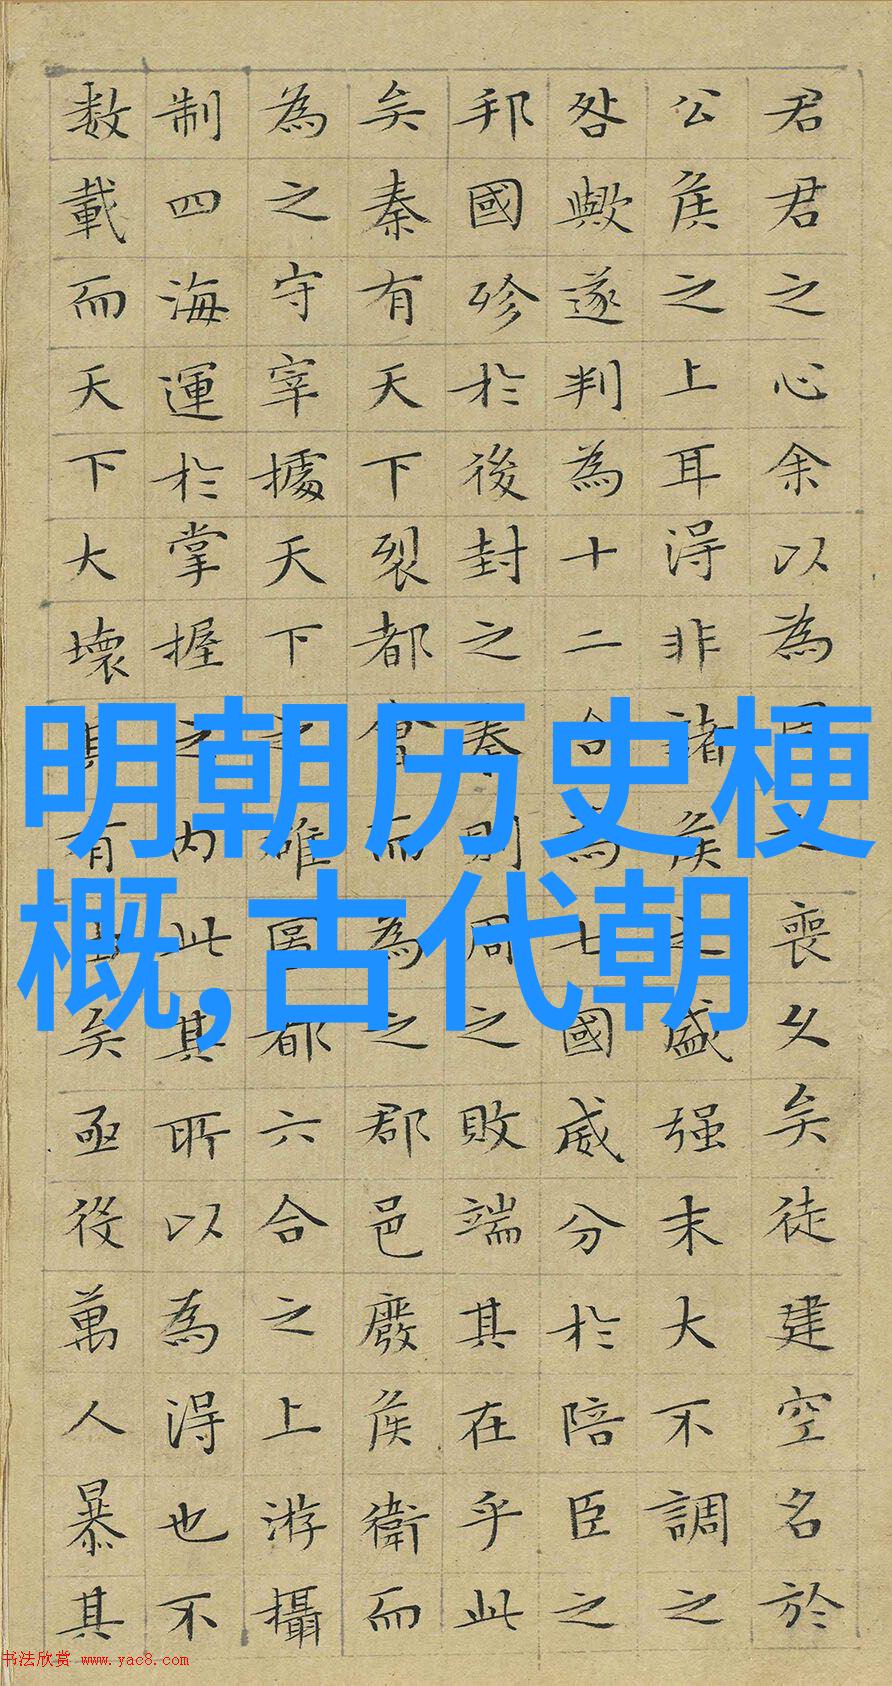 君君之心余以為喪乆矣徒建空名於
公侯之上耳得非諸侯之盛强末大不調之
咎歟遂判為十二合為七國威分於陪臣之
邦國殄於後封之秦則周之敗端其在乎此
矣秦有天下裂都會而為之郡邑廢侯衛而
為之守宰據天下之雄圖都六合之上游攝
制四海運於掌握之内此其所以為得也不
数載而天下大壞其有矣亟役萬人暴其
明朝历史梗
概,古代朝
书法欣赏 www.yac8.com